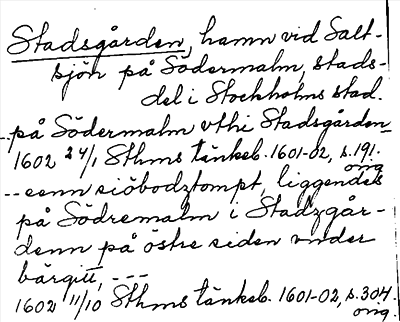 Stadsgården, hamn vid Salt-
sjön på Södermalm, stads-
del i Stockholms stad.
-på Södermalm vthi Stadsgården
1602 24/1 Sthms tänkeb. 1601-02, s. 191.
ong
--eenn siöbodztompt, liggendes
på Södremalm i Stadzgår-
denn på östre siden vnder
bärgitt, ---
1602 11/10 Sthms tänkeb. 1601-02, s. 304.
ong.